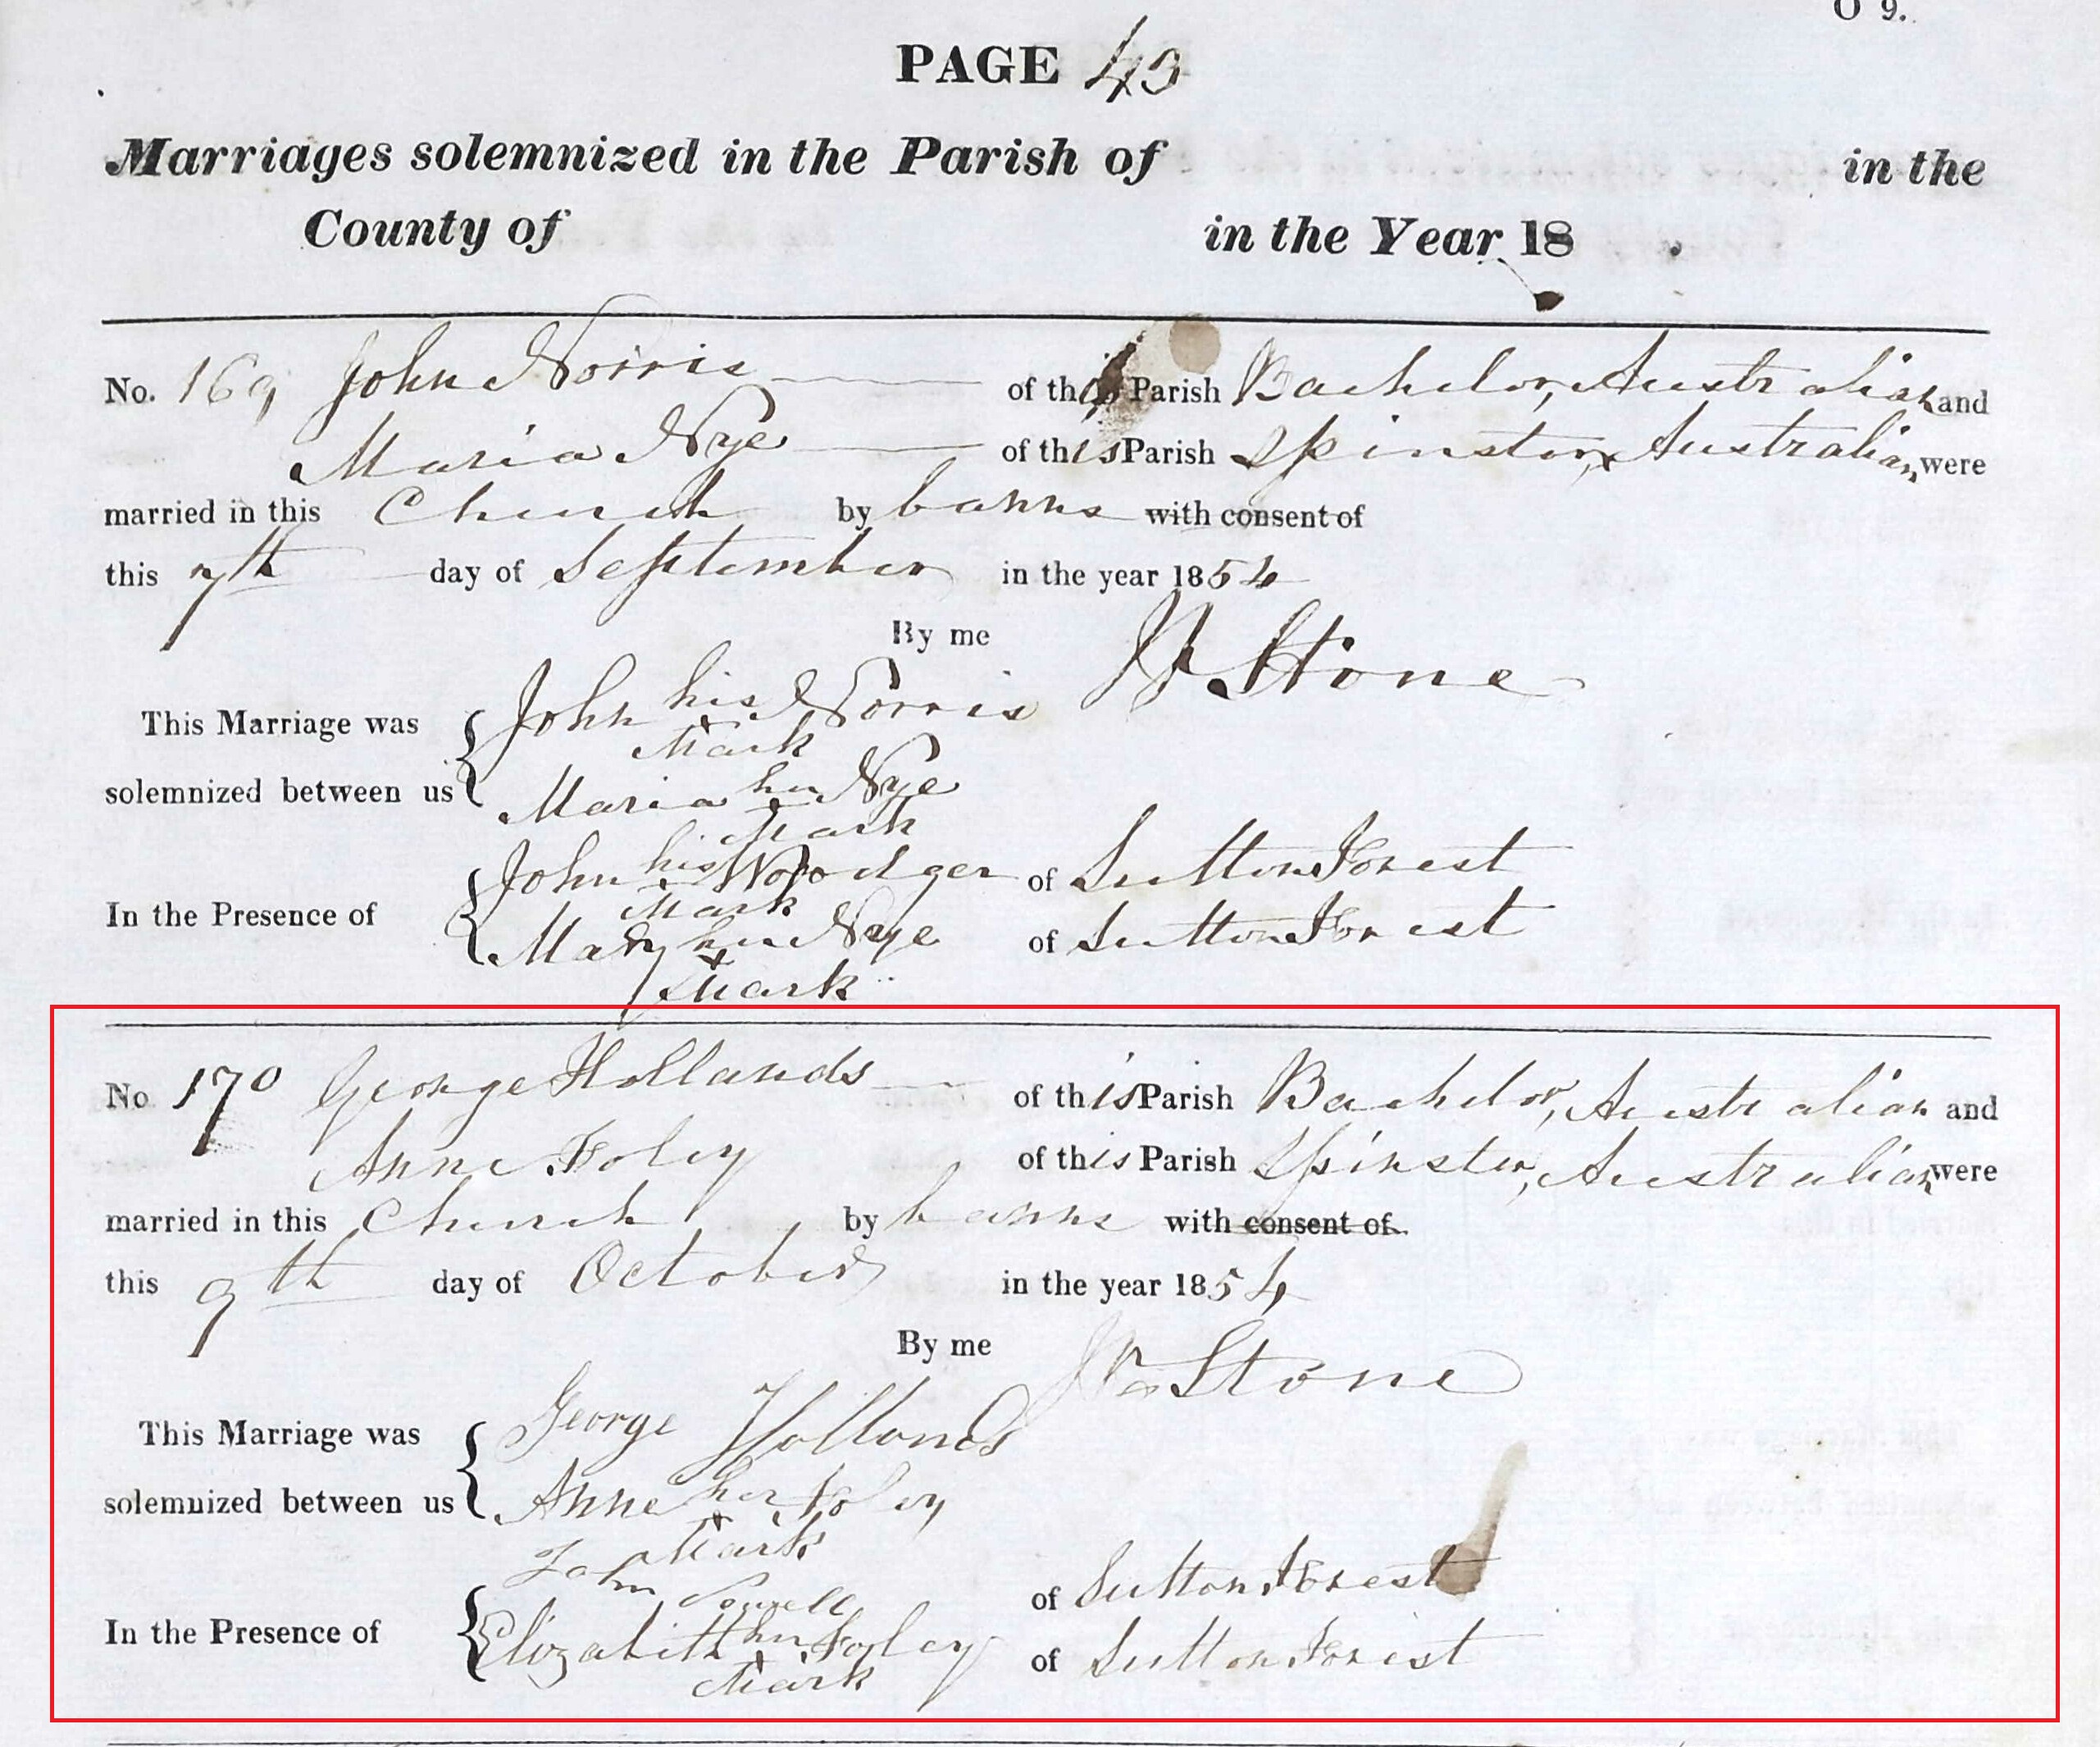 O 9.
PAGE 43
Marriages solemnized in the Parish of in the
County of in the Year 18
No. 169 John Norris of this Parish Bachelor, Australian and
Maria Nye of this Parish Spinster, Australian, were
married in this Church by banns with consent of
this 7th day of September in the year 1854
By me W Stone
This Marriage was John his Norris
Mark
solemnized between us Maria her Nye
Mark
John his Woodger of Sutton Forest
Mark
In the Presence of
Mary her Nye of Sutton Forest
x
Mark
No 170 George Hollands of this Parish Bachelor, Australian and
Anne Foley of this Parish Spinster, Australian, were
married in this Church by banns with consent of
this 9th day of October in the year 1854
By me Wm Stone
This Marriage was George Hollands
solemnized between us Anne her Foley
x
Mark
John Powell of Sutton Forest
In the Presence of
Elizabeth her Foley of Sutton Forest
x
Mark